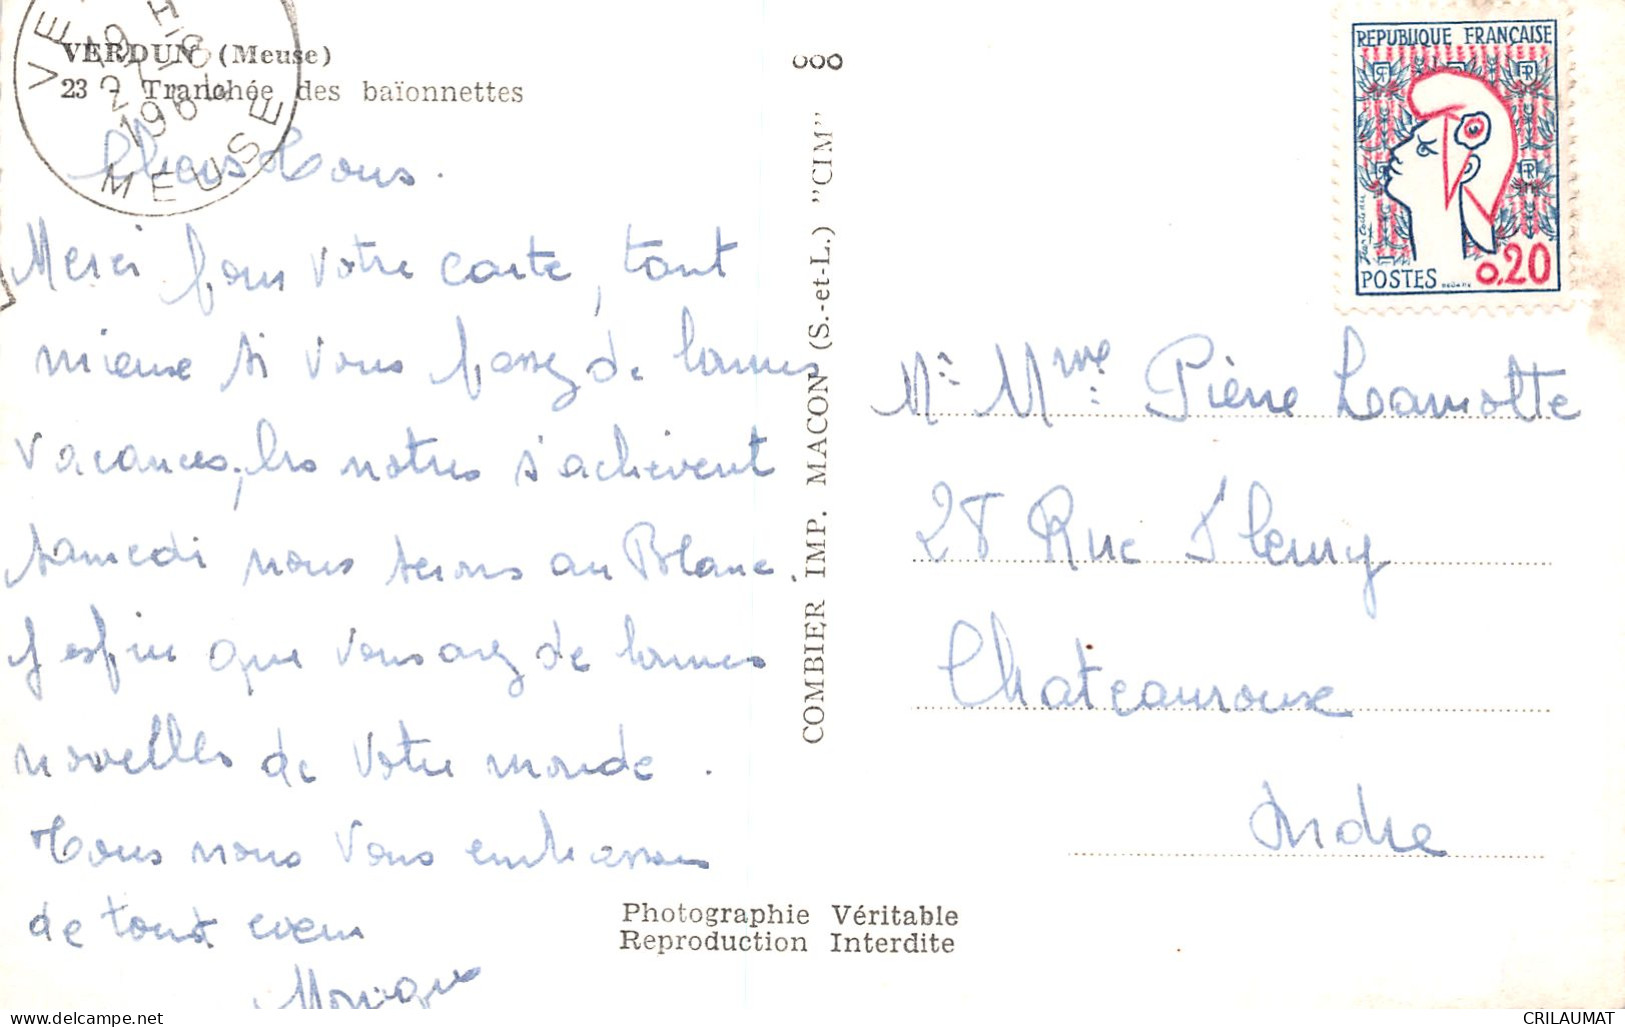 VERDUN (Meuse)
23 - Tranchée des baïonnettes
MEUSE
Chers tous.
Merci pour votre carte, tant
mieux si vous passez de bonnes
vacances, les nôtres s'achèvent
samedi nous serons au Blanc.
J'espère que vous avez de bonnes
nouvelles de votre monde.
Tous nous vous embrassons
de tout coeur
Monique
COMBIER IMP. MACON (S.-et-L.) "CIM"
Photographie Véritable
Reproduction Interdite
REPUBLIQUE FRANÇAISE
POSTES
0,20
Mr Mme Pierre Lamotte
28 Rue Fleury
Chateauroux
Indre
CRILAUMAT